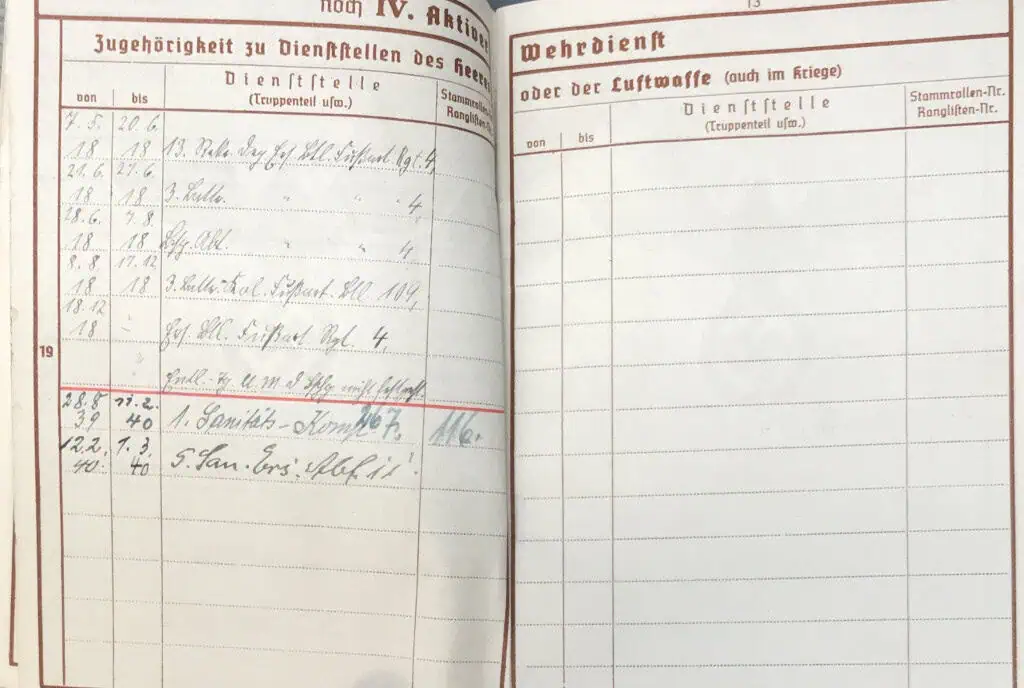 noch IV. Aktiver
Zugehörigkeit zu Dienststellen des Heeres
von
bis
Dienststelle
(Truppenteil usw.)
Stammrollen-Nr.
Ranglisten-Nr.
7.5. 20.6.
18 18 13. Rekr. Dep Ers. Btl. Fußart. Rgt. 4,
21.6. 27.6.
18 18 3. Battr. " " " 4,
28.6. 7.8.
18 18 Abt. " " 4
8.8 17.12
18 18 3. Battr. Fußart. Btl. 109,
18.12
18 - Ers. Btl. Fußart. Rgt. 4,
19
Entl.
28.8 11.2.
39 40 1. Sanitäts-Komp. 267. 116.
12.2. 1.3.
40. 40 5. San. Ers. Abt. 11.
13
Wehrdienst
oder der Luftwaffe (auch im Kriege)
von
bis
Dienststelle
(Truppenteil usw.)
Stammrollen-Nr.
Ranglisten-Nr.